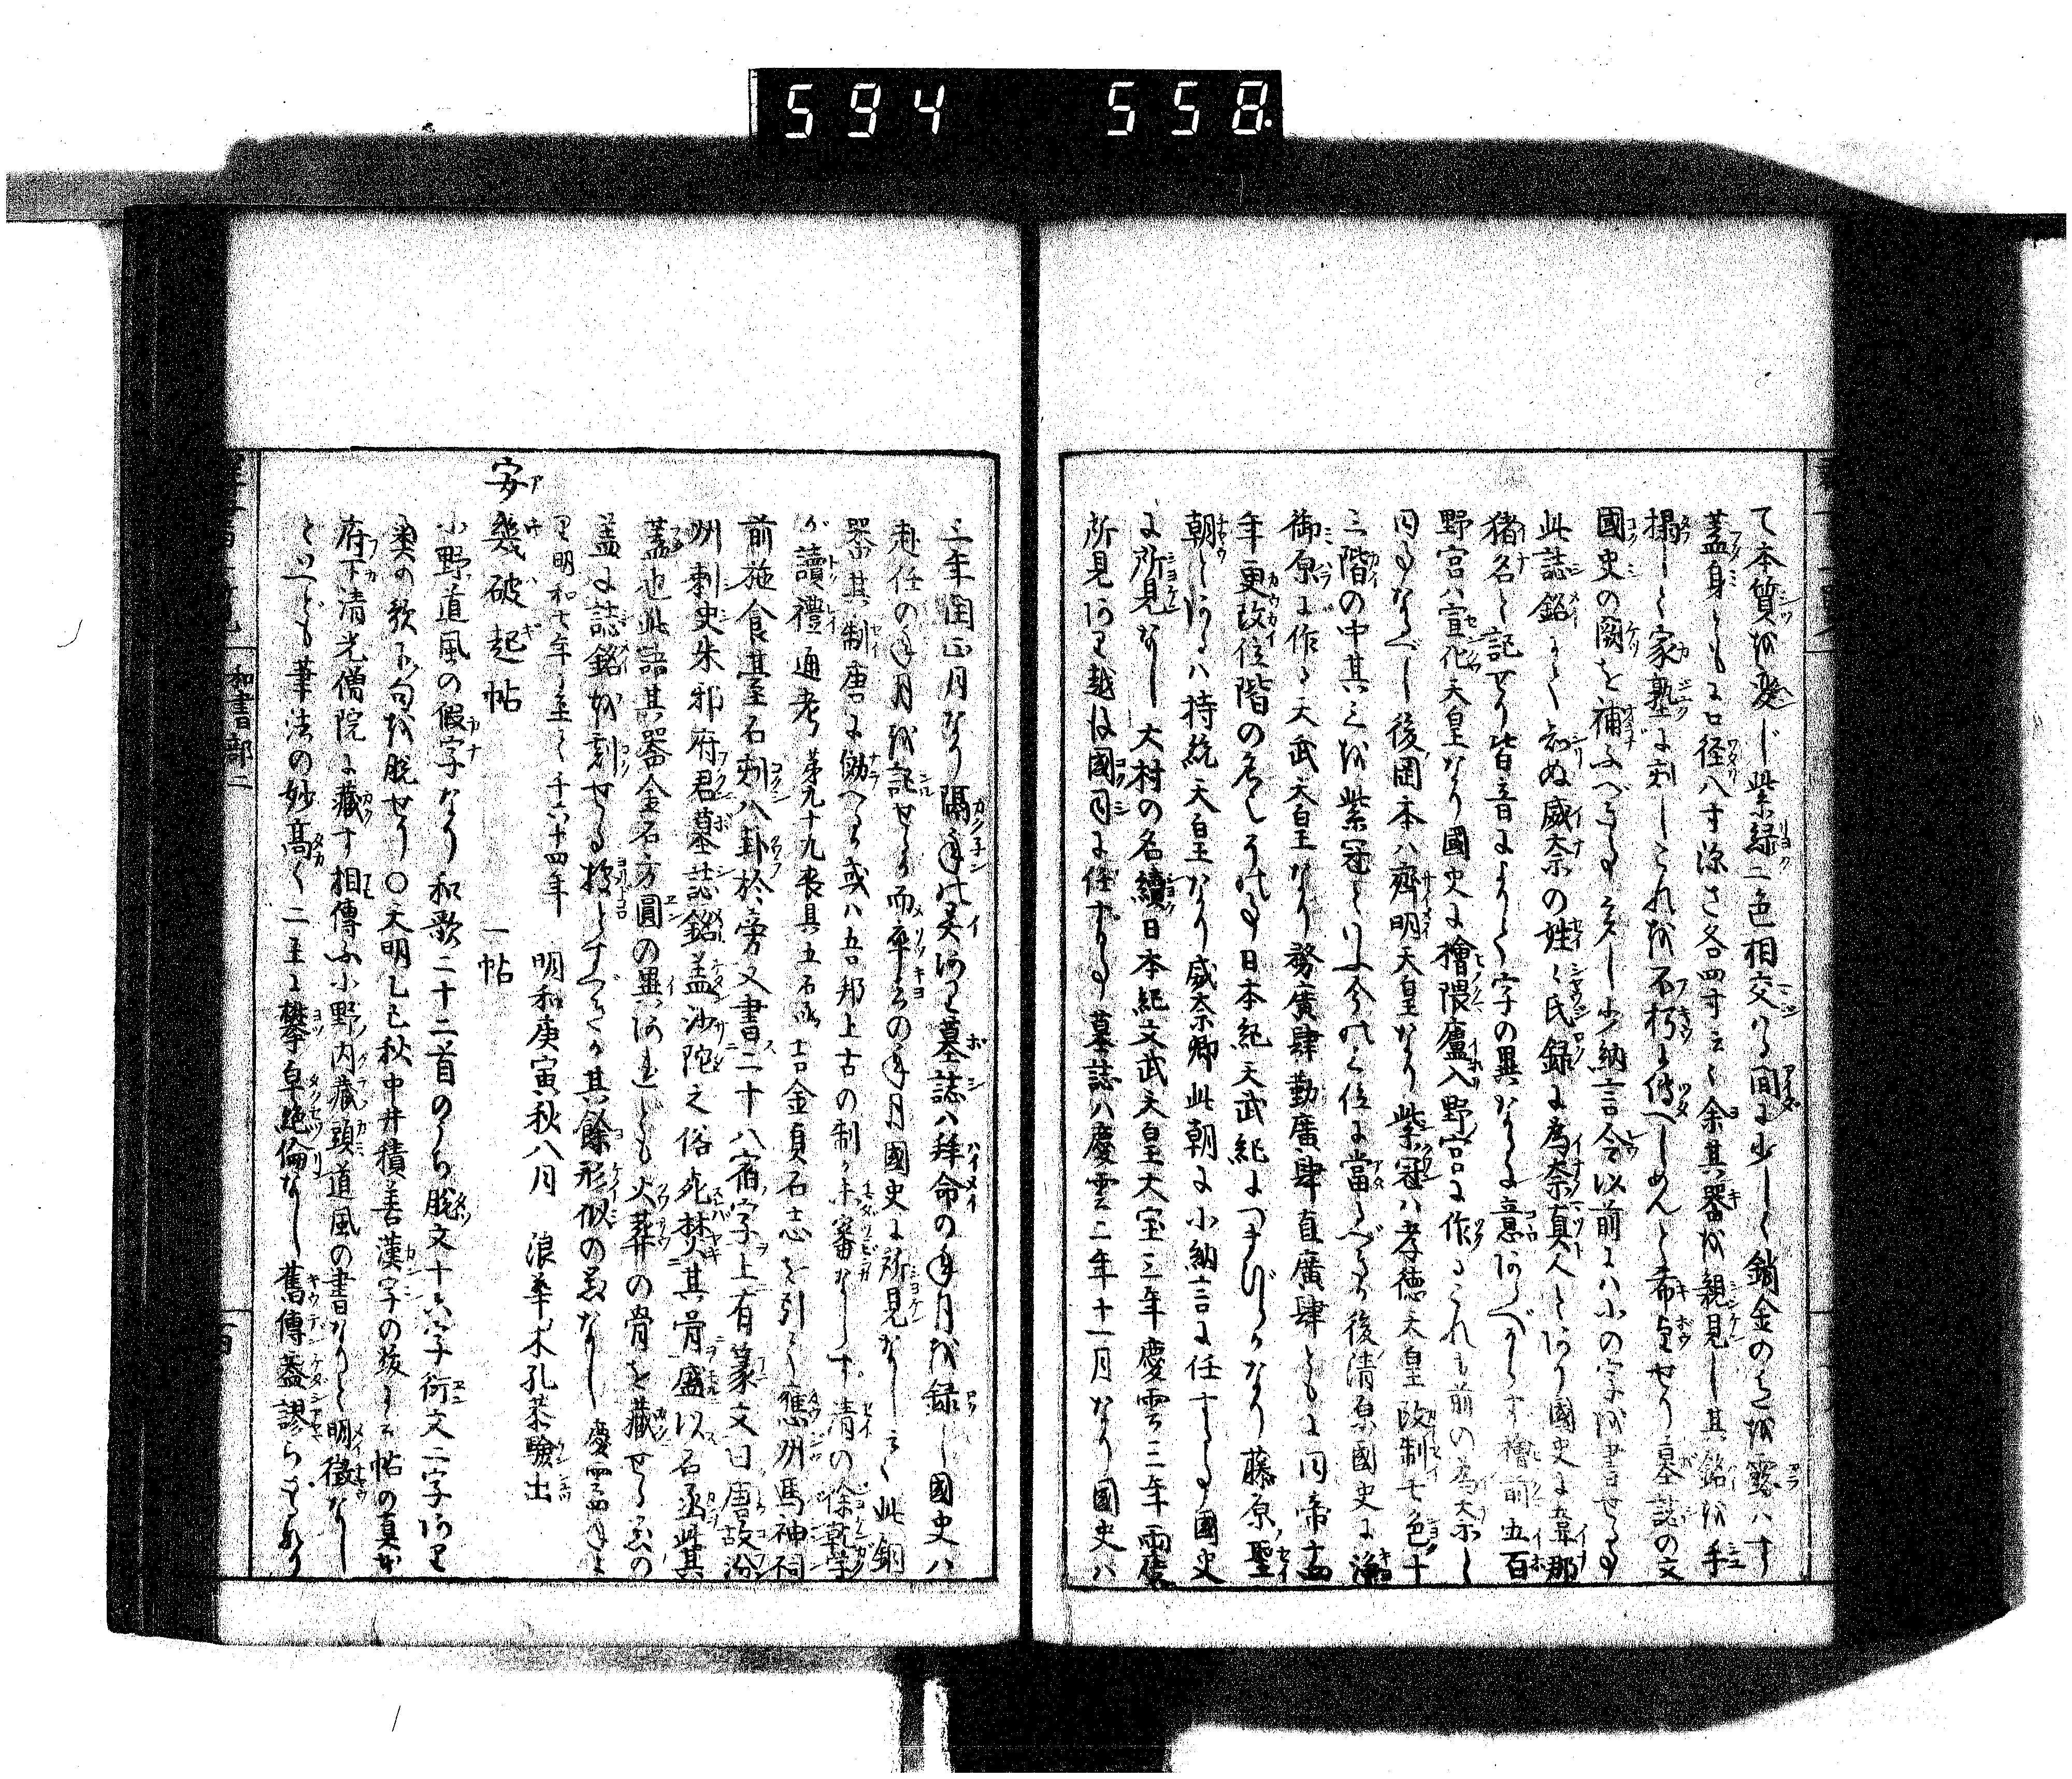 594 558.
て本質を変じ紫緑二色相交りる間に少しく鎖金の色を露ハす
蓋身ともに口径八寸深さ各四寸云々余其器を親見し其銘を手
搨して家塾に刻しこれを不朽に傳へしめんと希望せり墓誌の文
國史の闕を補ふべき事多し少納言令以前にハ小の字を書せる事
此誌銘にて知ぬ威奈の姓ハ氏録に為奈真人とあり國史に韋那
猪名と記せり皆音によりて字の異なるに意あるべからず檜前五百
野宮ハ宣化天皇なり國史に檜隈廬入野宮に作るこれも前の為奈と
同事なるべし後岡本ハ齊明天皇なり紫冠ハ孝徳天皇改制七色十
三階の中其三を紫冠といふ今の三位に當るべきか後清原國史に浄
御原に作る天武天皇なり務廣肆勤廣肆直廣肆ともに同帝十四
年更改位階の名しかれる事日本紀天武紀につまびらかなり藤原聖
朝とあるハ持統天皇なり威奈卿此朝に小納言に任ずる事國史
に所見なし大村の名續日本紀文武天皇大宝三年慶雲三年両度
所見あり越後國司に任ずる事墓誌ハ慶雲二年十一月なり國史ハ
三年閏正月なり隔年の異あり墓誌ハ拝命の年月を録し國史ハ
赴任の年月を記せるか而卒去の年月國史に所見なし云々此銅
器其制唐に倣へるか或ハ吾邦上古の制か未審ならず清の徐乾學
が讀禮通考第九十九喪具五石誌吉金貞石志を引て應州馬神祠
前施食基石刻八卦於旁又書二十八宿字上有篆文曰唐故汾
州刺史朱邪府君墓誌銘蓋沙陀之俗死焚其骨盛以石函此其
蓋也此語其器金石方圓の異ハあれども火葬の骨を藏せる器の
蓋に誌銘を刻せる据とすべきか其餘形似の器なし慶雲四年よ
り明和七年に至て千六十四年　明和庚寅秋八月　浪華木孔恭驗出
安幾破起帖　一帖
小野道風の假字なり和歌二十二首のうち脱文十六字衍文二字あり
奥の歌下句を脱せり〇天明乙巳秋中井積善漢字の跋に云帖の真本
府下清光僧院に藏す相傳ふ小野内藏頭道風の書なりと明徴なし
といへども筆法の妙高く二王に攀卓絶倫なし舊傳蓋謬らざるなり
和書部二